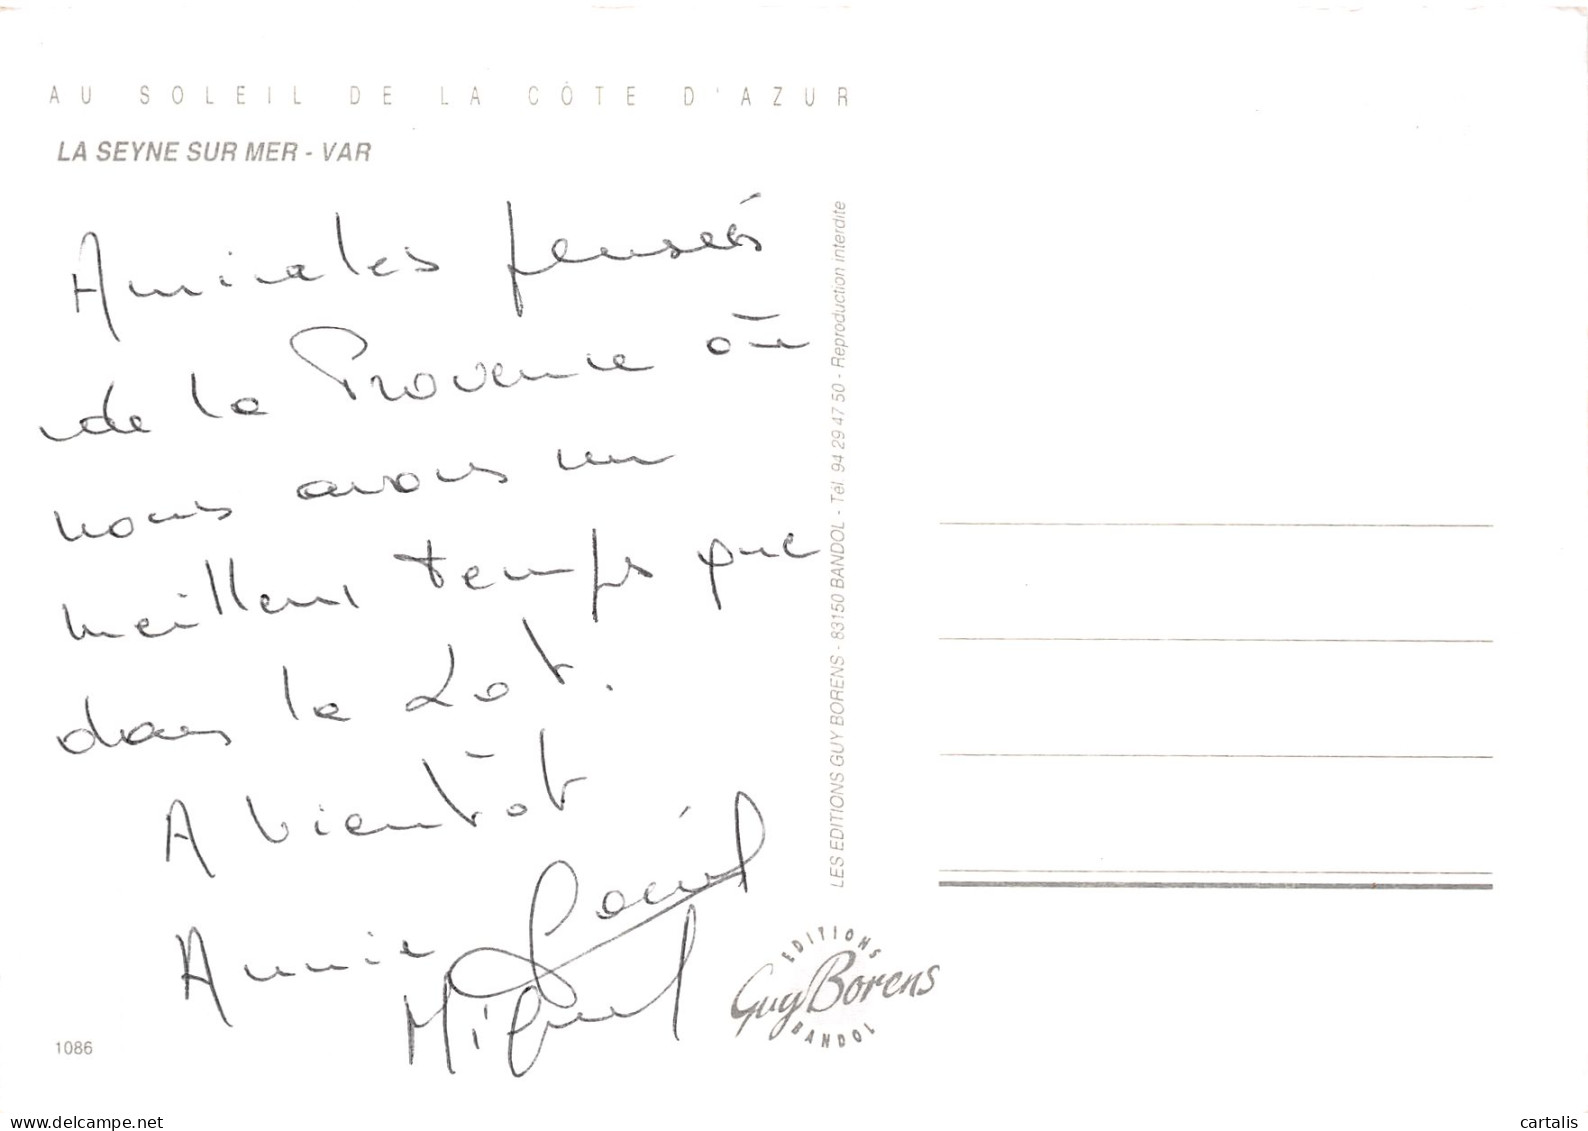 AU SOLEIL DE LA CÔTE D'AZUR
LA SEYNE SUR MER - VAR
Amicales pensées
de la Provence où
nous avons un
meilleur temps que
dans le Lot.
A bientôt
Annie
Miguel
LES EDITIONS GUY BORENS - 83150 BANDOL - Tél. 94 29 47 50 - Reproduction interdite
EDITIONS
Guy Borens
BANDOL
1086
www.delcampe.net
cartalis